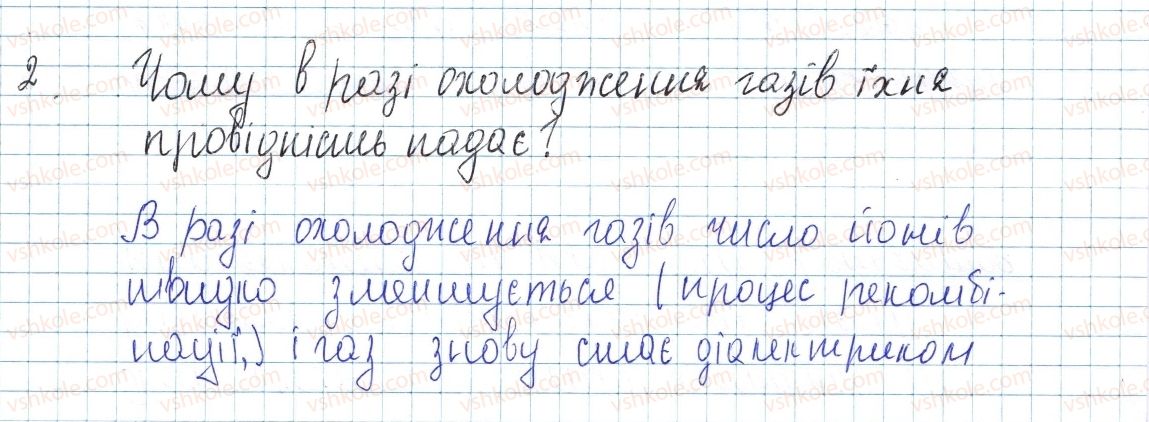 2. Чому в разі охолодження газів їхня
провідність падає?
В разі охолодження газів число йонів
швидко зменшується (процес рекомбі-
нації,) і газ знову стає діалектриком